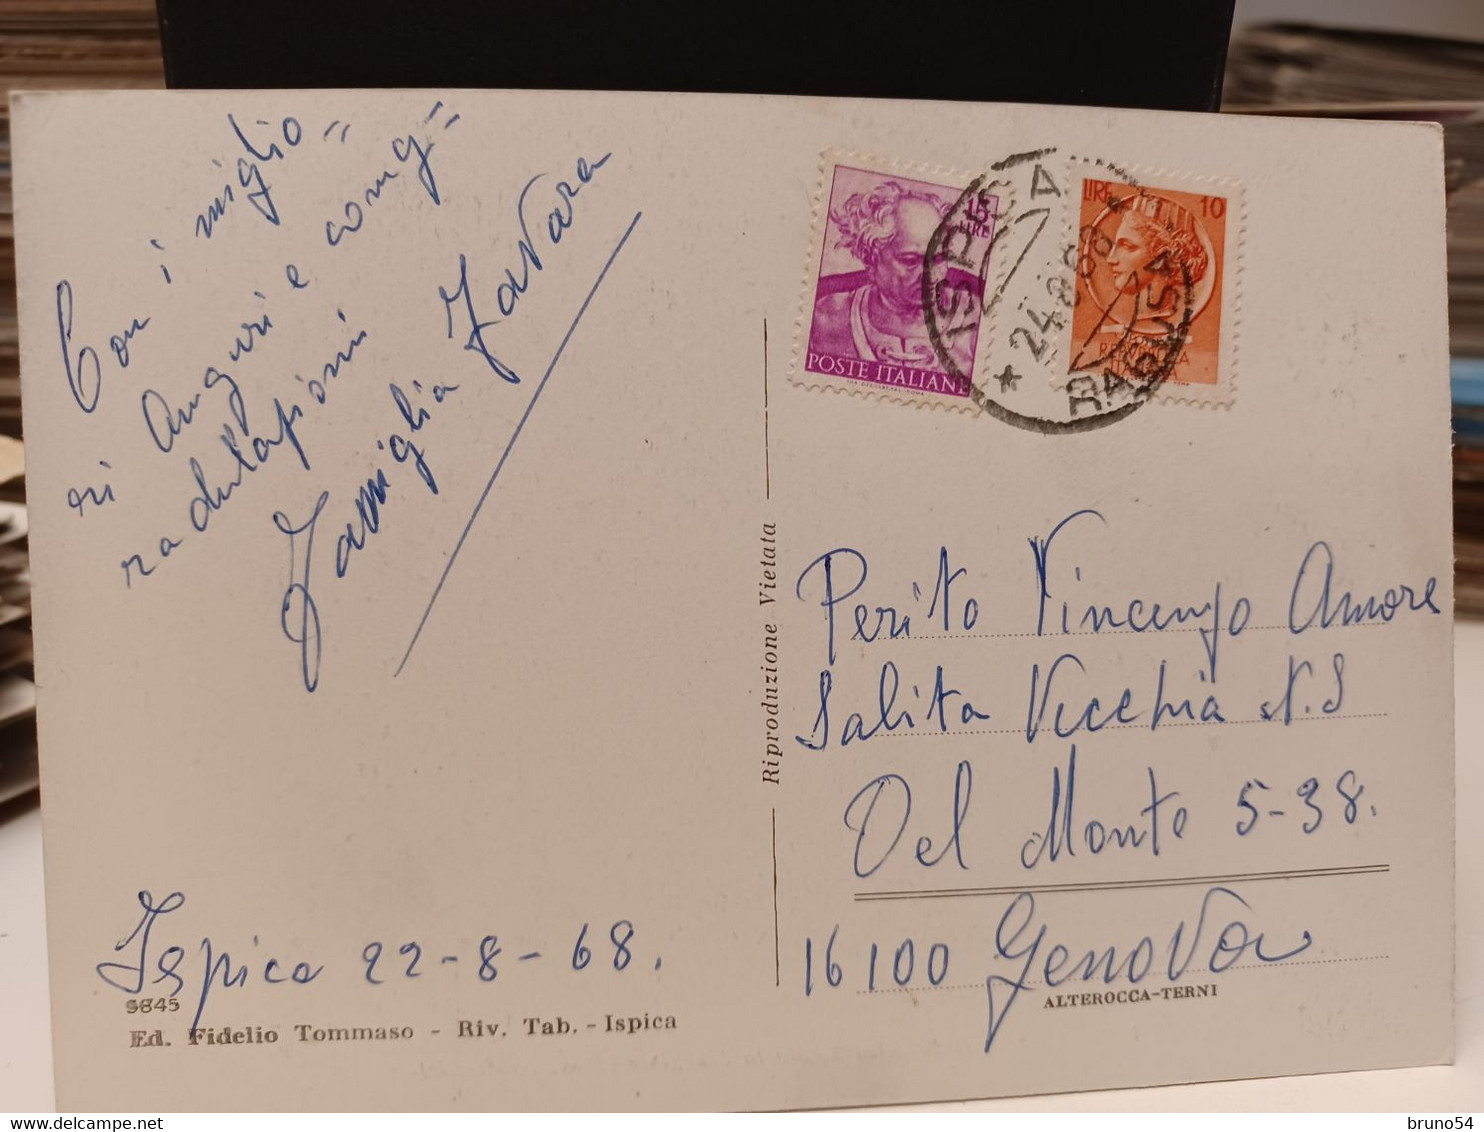 Con i miglio=
ri Auguri e cong=
ratulazioni
Famiglia Favara
Ispica 22-8-68.
9845
Ed. Fidelio Tommaso - Riv. Tab. - Ispica
Riproduzione Vietata
15
LIRE
POSTE ITALIANE
LIRE 10
ISPICA
* 24.8.68 *
RAGUSA
Perito Vincenzo Amore
Salita Vecchia N.S
Del Monte 5-38.
16100 Genova
ALTEROCCA-TERNI
bruno54